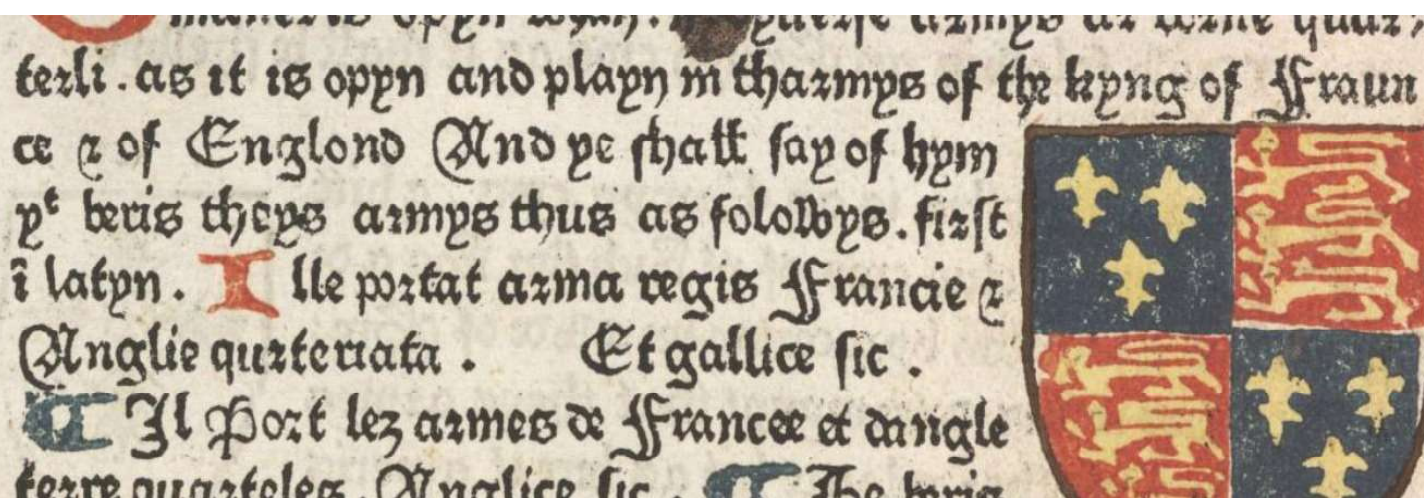 opyn
armys ar borne quar⸗
terli . as it is opyn and playn in tharmys of the kyng of Fraun
ce ⁊ of Englond And ye shall say of hym
yͭ beris theys armys thus as folowys . first
ī latyn . Ille portat arma regis Francie ⁊
Anglie qurteriata . Et gallice sic .
¶ Il Port lez armes de Francee et dangle
terre quarteles . Anglice sic . ¶ The beris